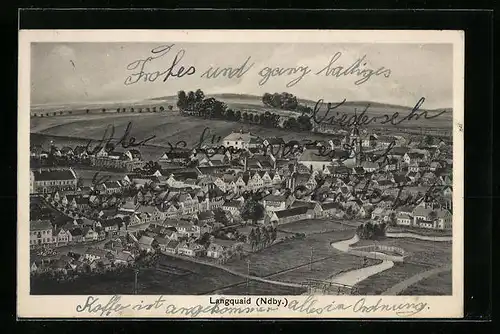 Frohes und ganz baldiges
Wiedersehn
Langquaid (Ndby.)
Kaffee ist angekommen alles in Ordnung